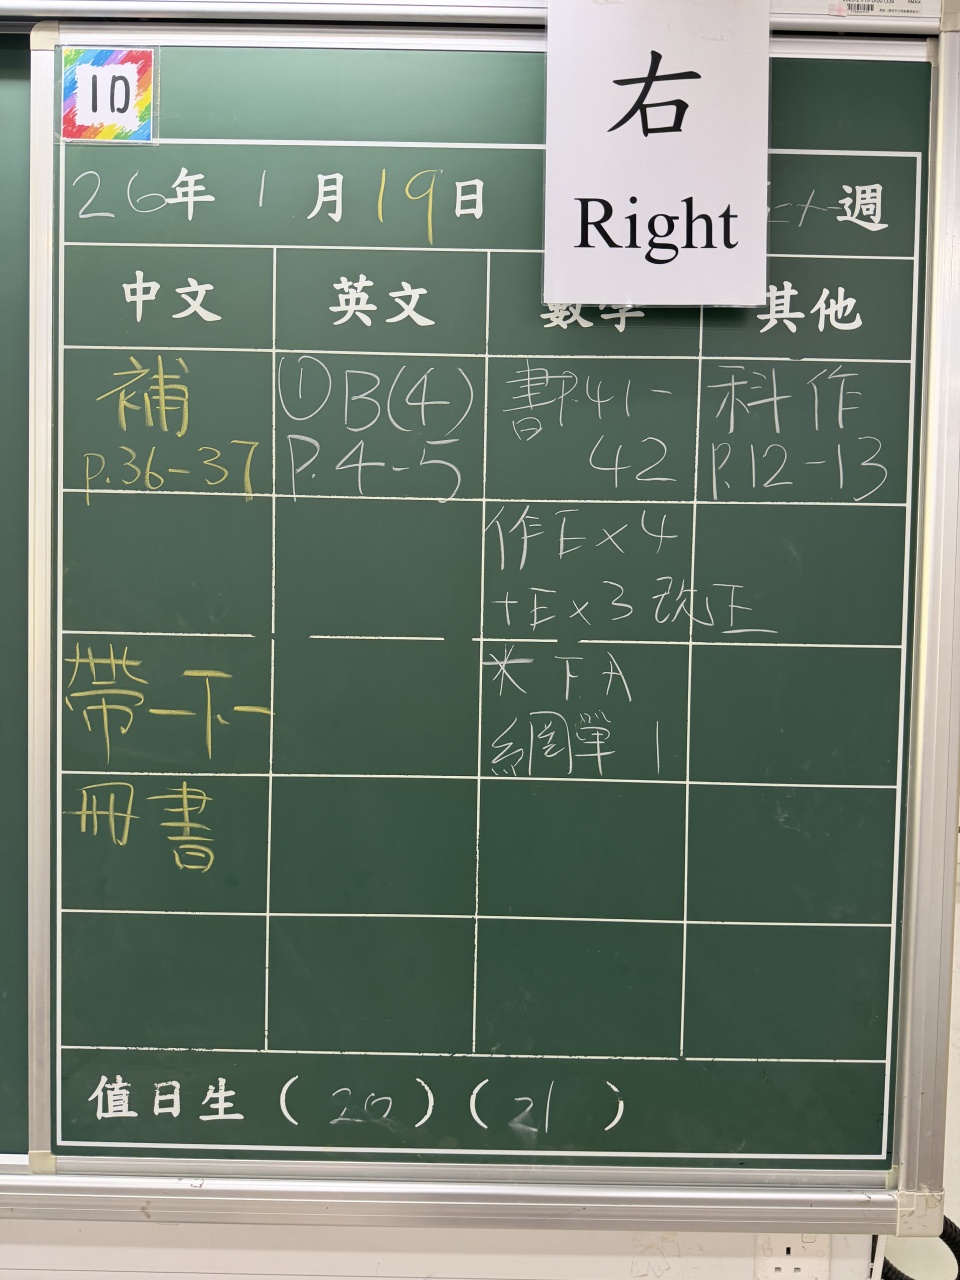 1D
右
Right
26年 1 月 19日 週
中文 英文 數學 其他
補
p.36-37
① B(4)
P.4-5
書P.41-
42
科作
P.12-13
作Ex4
+Ex3 改正
帶一下一
冊書
* 下A
網單 1
值日生 ( 20 ) ( 21 )